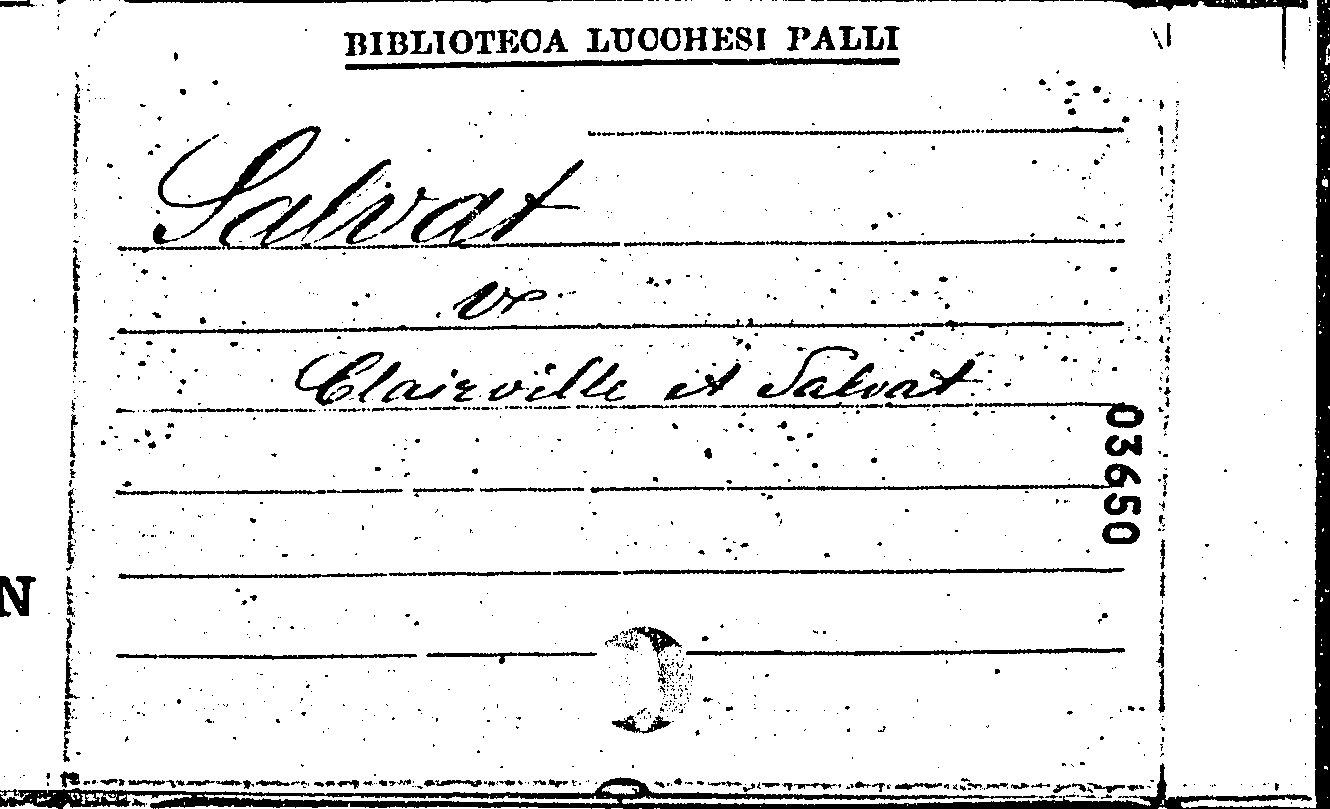 BIBLIOTECA LUCCHESI PALLI
Salvat
v
Clairville et Salvat
03650
N